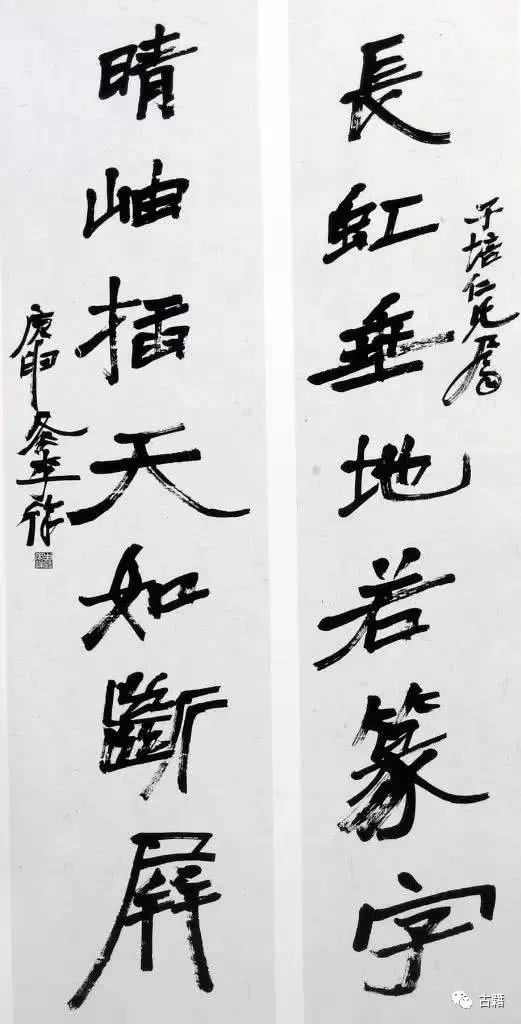 子培仁兄
長虹垂地若篆字
晴岫插天如斷屏
庚申冬李徐
古籍